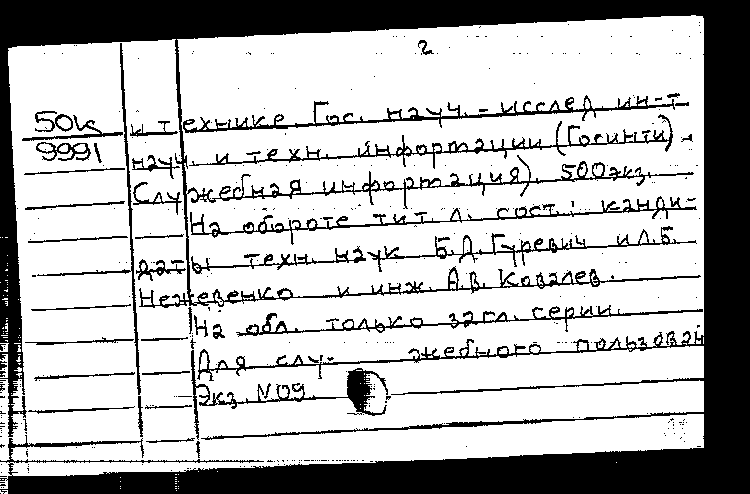 2
50к
9991
и технике. Гос. науч.-исслед. ин-т
науч. и техн. информации (Госинти).
Служебная информация). 500экз.
На обороте тит. л. сост.: канди-
даты техн. наук Б.Д.Гуревич и Л.Б.
Нежевенко и инж. А.В. Ковалев.
На обл. только загл. серии.
Для слу- жебного пользован
Экз. N09.